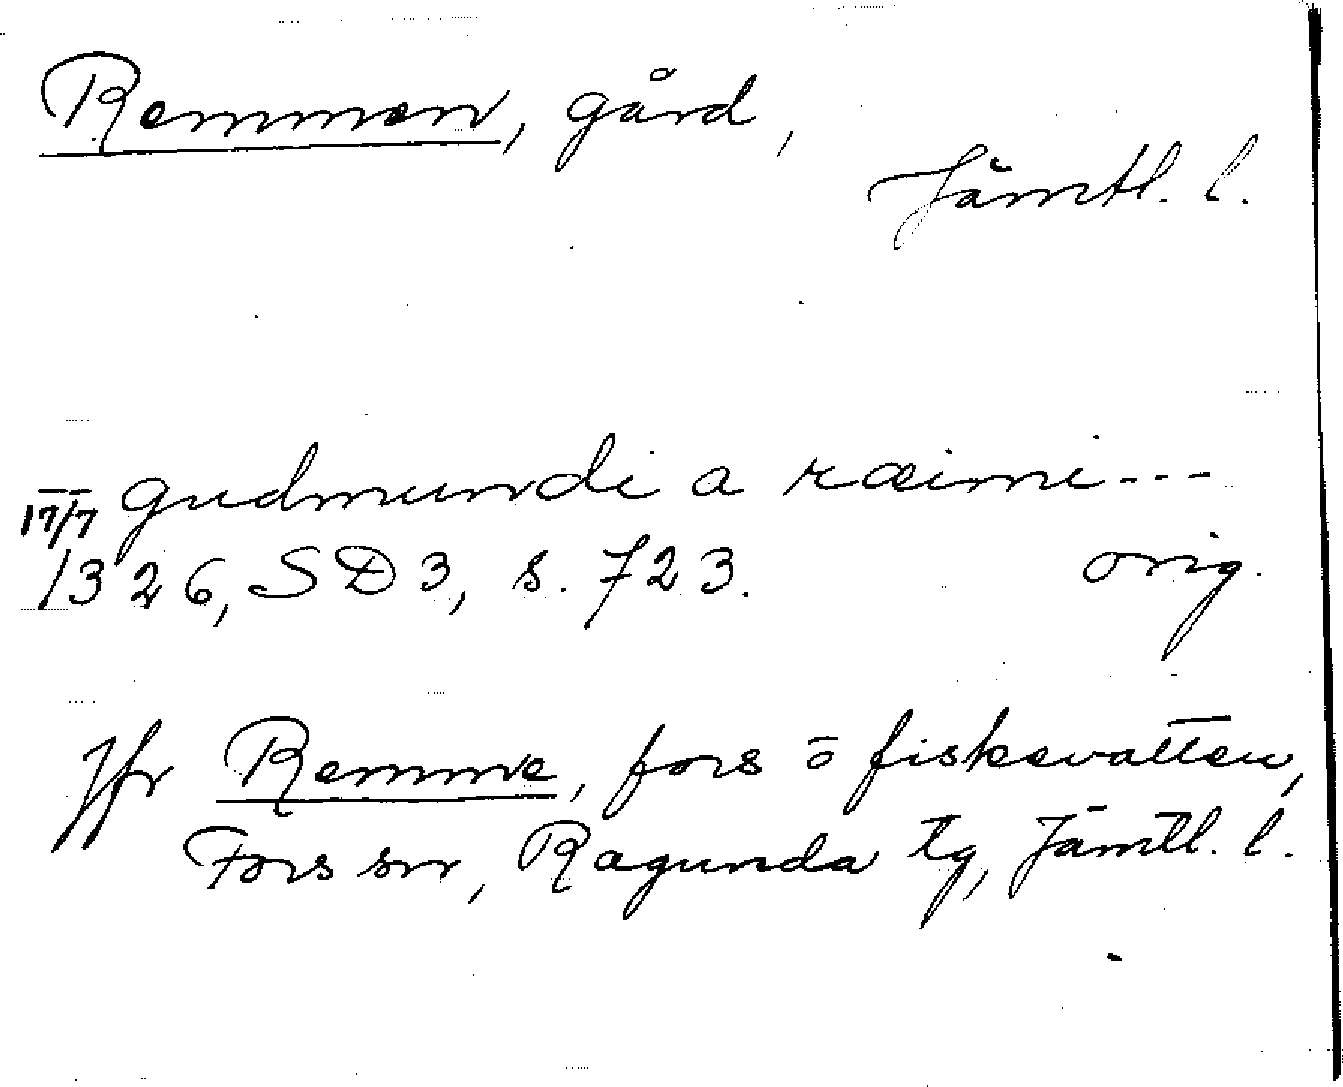 Remmen, gård,
Jämtl. l.
gudmundi a ræimi---
17/7 1326, SD 3, s. 723. orig.
Jfr Remme, fors o fiskevatten,
Fors sn, Ragunda tg, Jämtl. l.